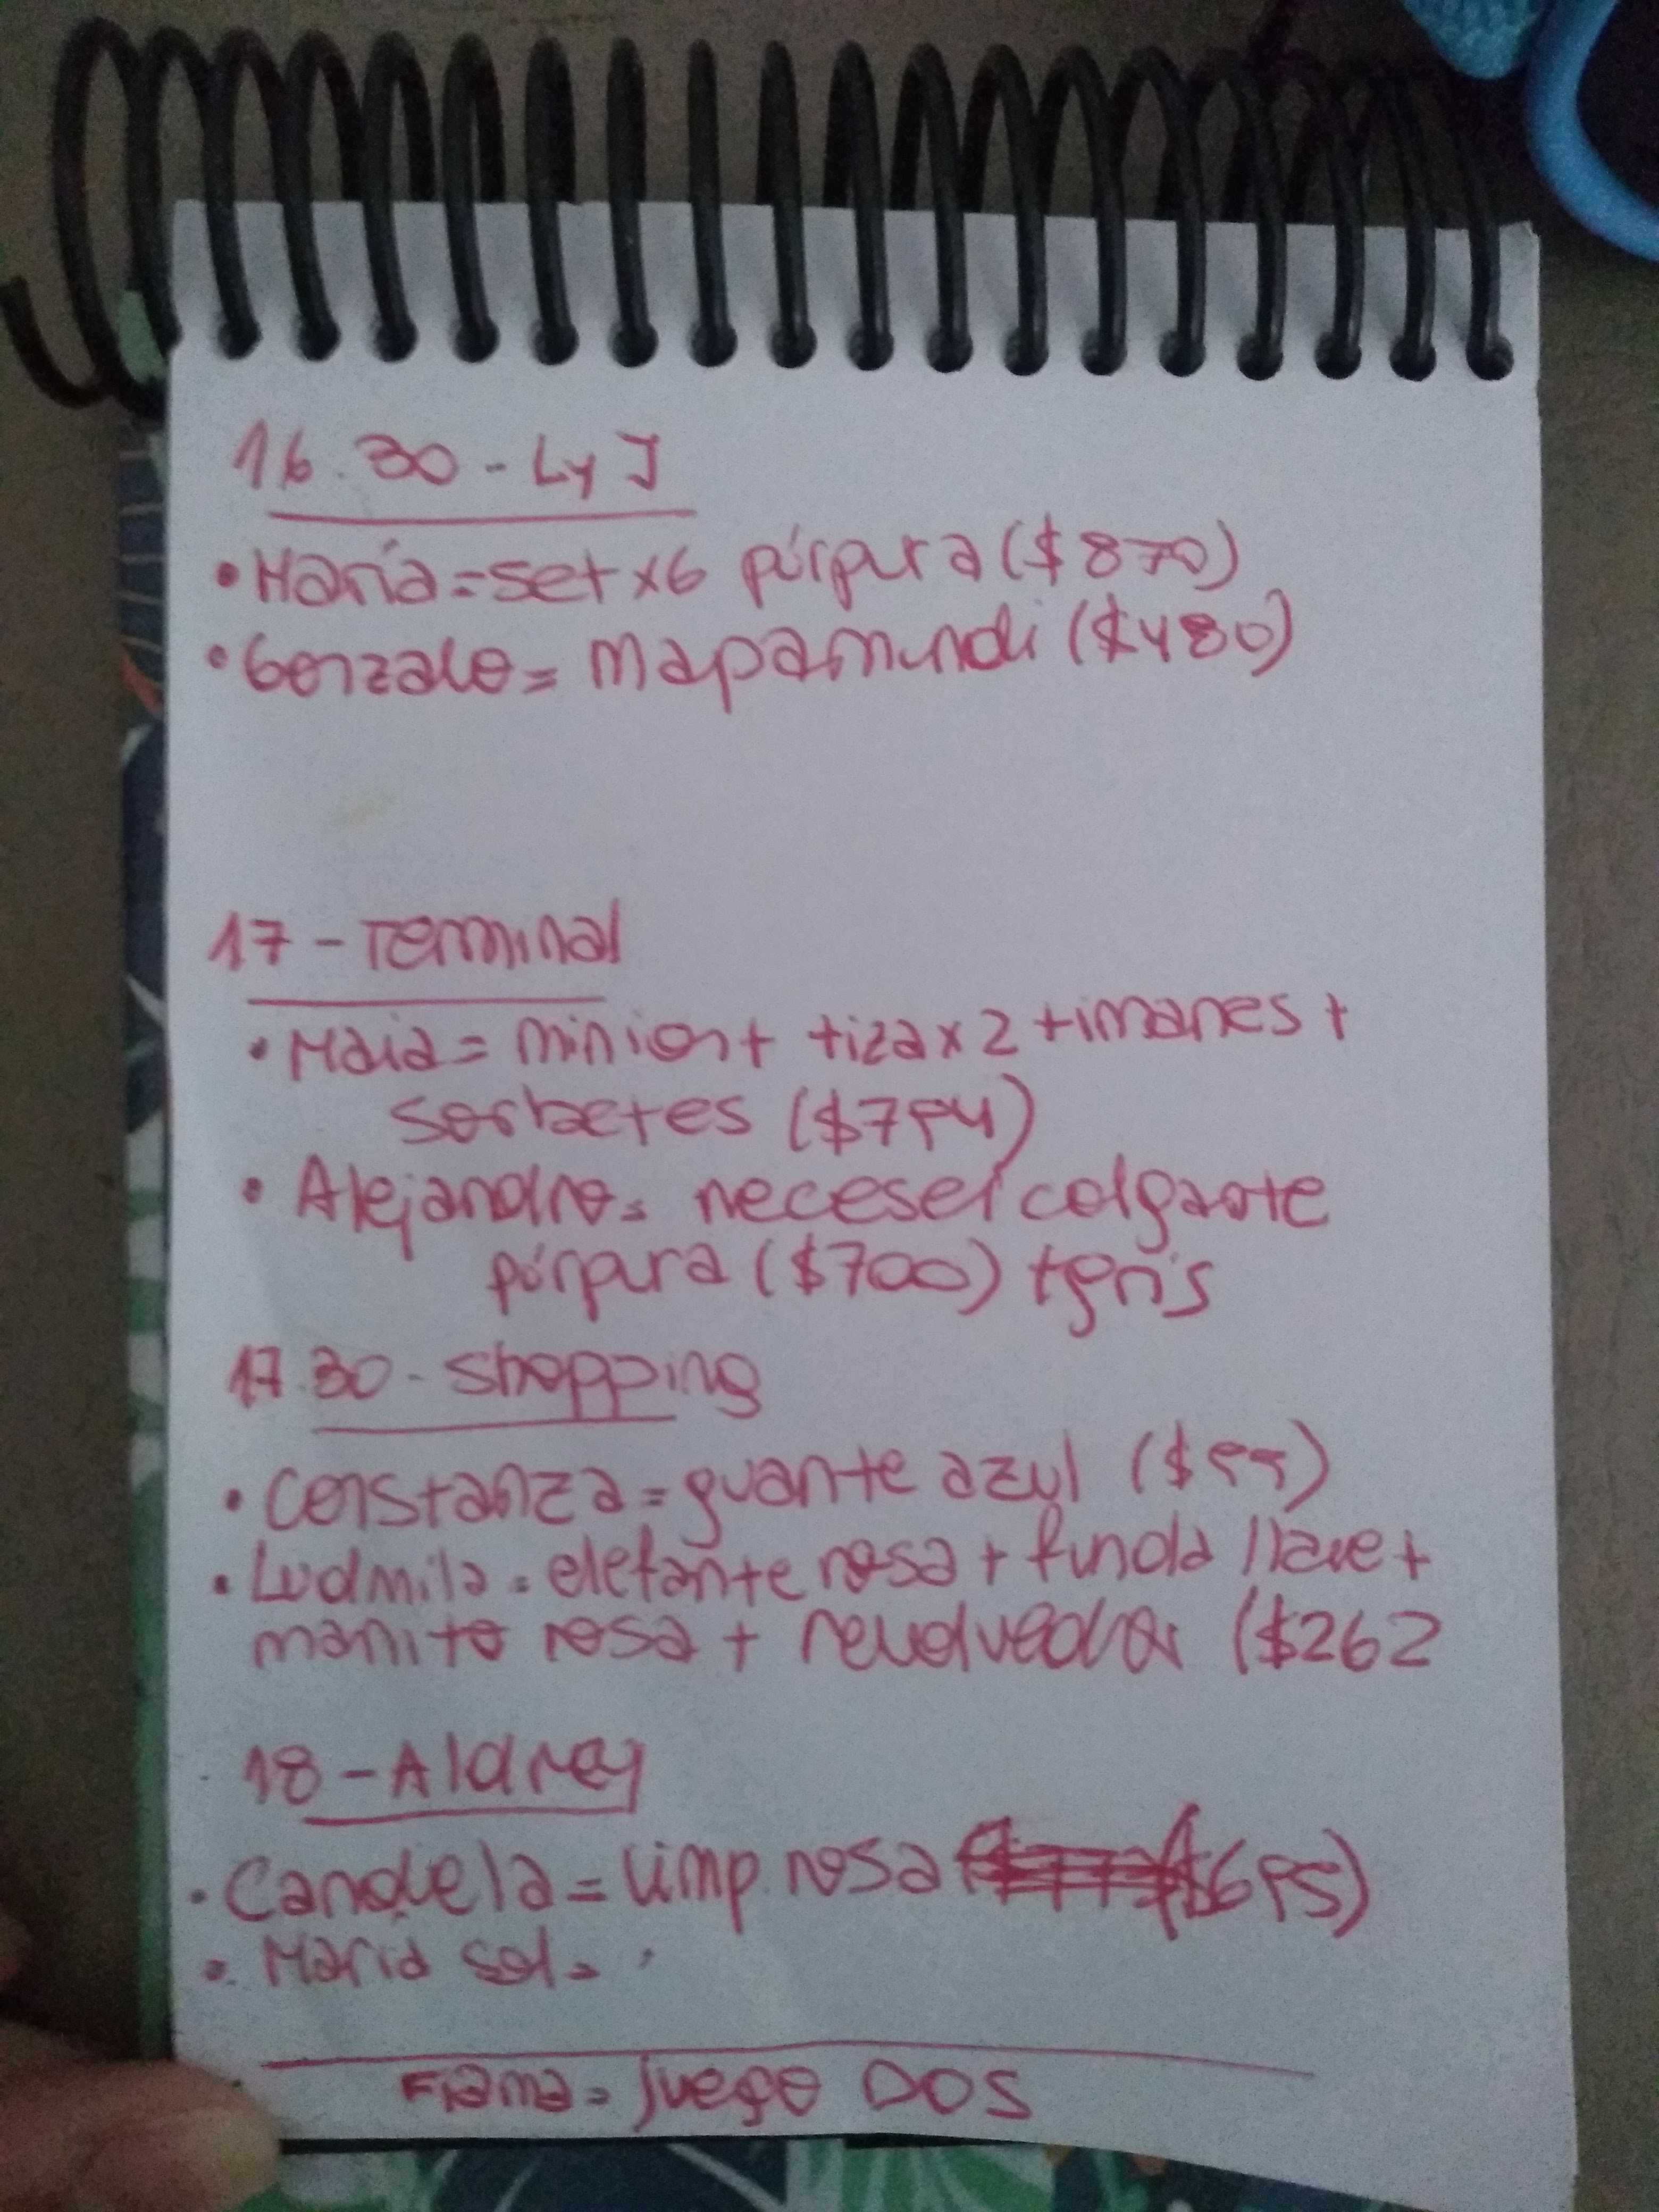 16.30 - L y J
• María = set x6 púrpura ($870)
• Gonzalo = mapamundi ($480)
17 - Terminal
• Maia = minion + tiza x 2 + imanes +
sorbetes ($794)
• Alejandro = neceser colgante
púrpura ($700) + gris
17.30 - Shopping
• Constanza = guante azul ($99)
• Ludmila = elefante rosa + funda llave +
manito rosa + revolvedor ($262
18 - Aldrey
• Candela = limp. rosa ($695)
• María Sol =
Fiama = juego DOS